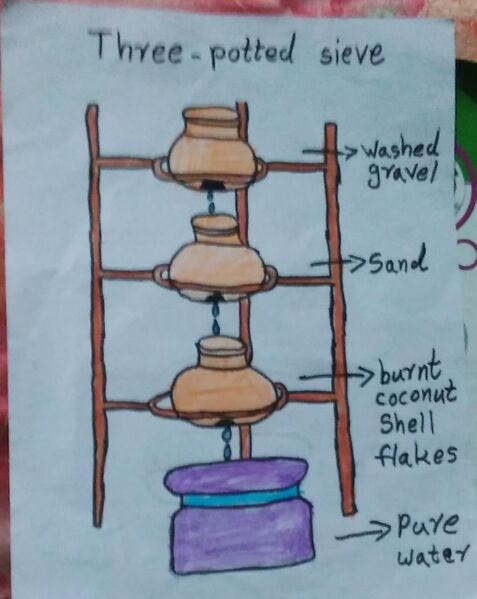 Three-potted sieve
washed
gravel
Sand
burnt
coconut
Shell
flakes
Pure
water